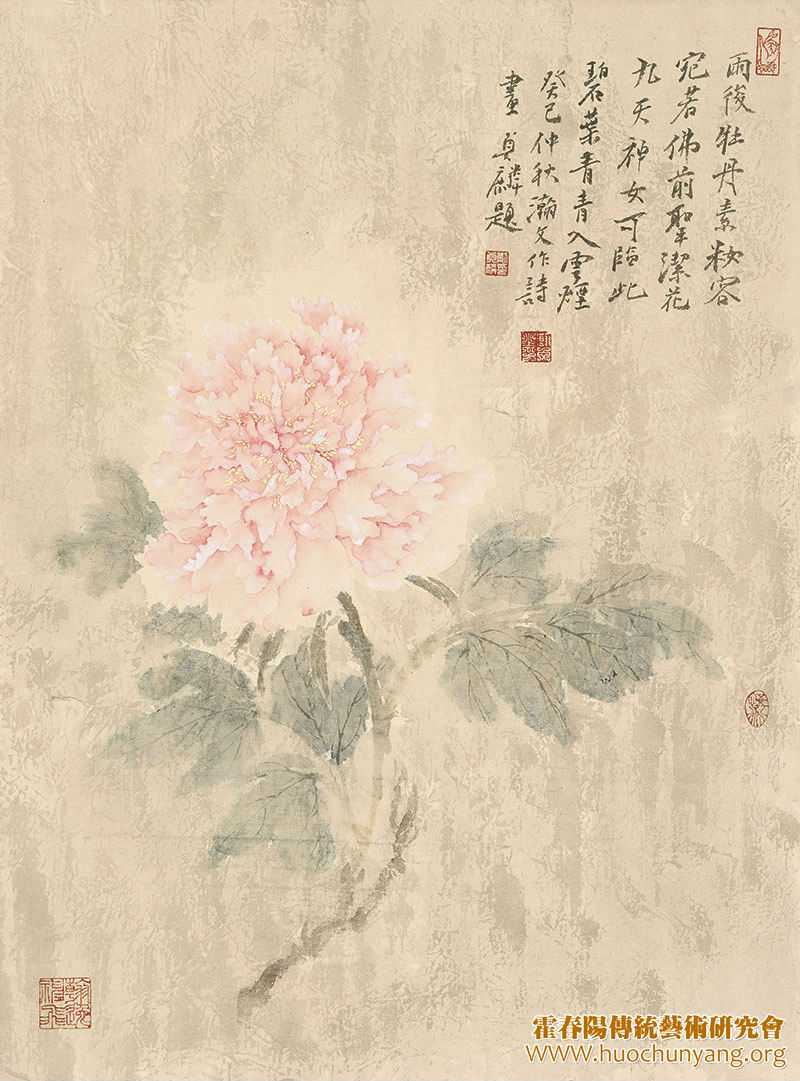 雨後牡丹素妝容
宛若佛前聖潔花
九天神女可臨此
碧葉青青入雲煙
癸巳仲秋瀚文作詩
畫 真麟題
霍春陽傳統藝術研究會
www.huochunyang.org